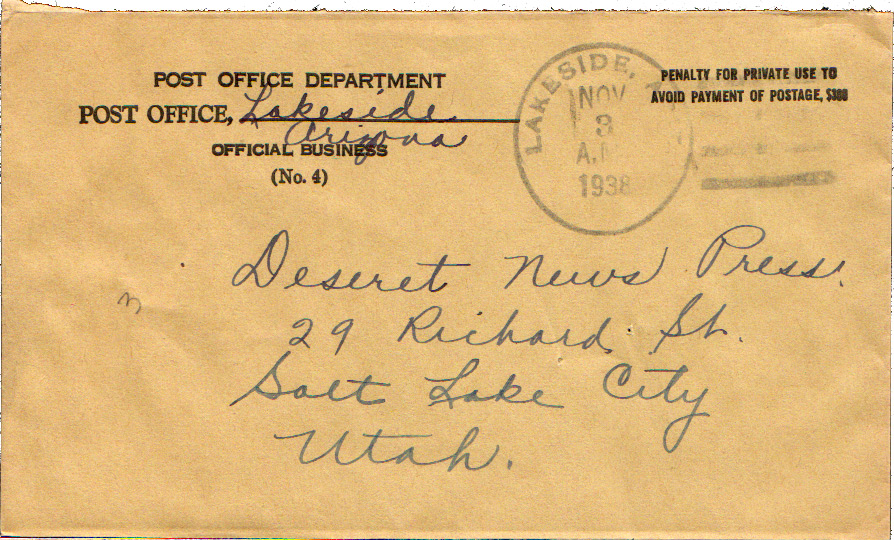 POST OFFICE DEPARTMENT
POST OFFICE, Lakeside
Arizona
OFFICIAL BUSINESS
(No. 4)
LAKESIDE,
NOV
3
A.
1938
PENALTY FOR PRIVATE USE TO
AVOID PAYMENT OF POSTAGE, $300
Deseret News Press.
29 Richard St.
Salt Lake City
Utah.